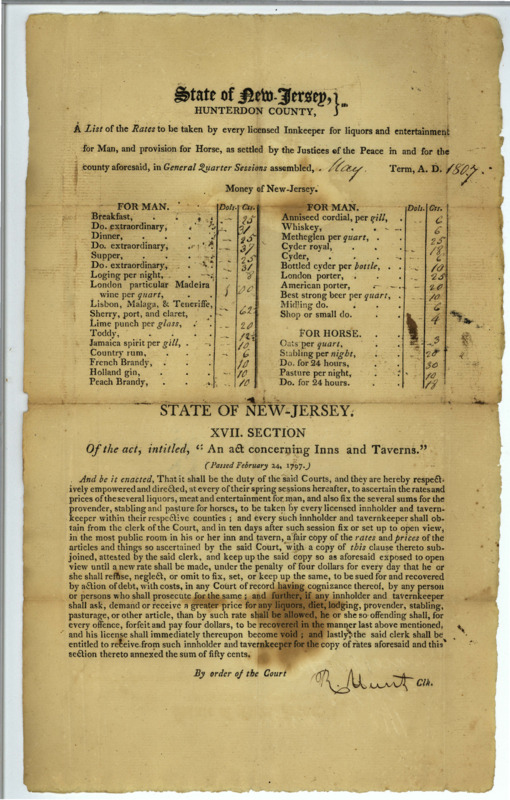 State of New-Jersey, } ss.
HUNTERDON COUNTY,
A List of the Rates to be taken by every licensed Innkeeper for liquors and entertainment
for Man, and provision for Horse, as settled by the Justices of the Peace in and for the
county aforesaid, in General Quarter Sessions assembled, May Term, A. D. 1807.
Money of New-Jersey.
FOR MAN. Dols. Cts.
Breakfast, 25
Do. extraordinary, 31
Dinner, 25
Do. extraordinary, 37
Supper, 25
Do. extraordinary, 31
Loging per night,
London particular Madeira
wine per quart, 00
Lisbon, Malaga, & Teneriffe,
Sherry, port, and claret, 62
Lime punch per glass, 20
Toddy,
Jamaica spirit per gill, 10
Country rum, 6
French Brandy, 10
Holland gin, 10
Peach Brandy, 10
FOR MAN. Dols. Cts.
Anniseed cordial, per gill, 6
Whiskey, 6
Metheglen per quart, 25
Cyder royal, 18
Cyder, 6
Bottled cyder per bottle, 10
London porter, 25
American porter, 20
Best strong beer per quart, 10
Midling do. 6
Shop or small do. 4
FOR HORSE.
Oats per quart, 3
Stabling per night, 20
Do. for 24 hours, 30
Pasture per night, 10
Do. for 24 hours. 18
STATE OF NEW-JERSEY.
XVII. SECTION
Of the act, intitled, "An act concerning Inns and Taverns."
(Passed February 24, 1797.)
And be it enacted, That it shall be the duty of the said Courts, and they are hereby respect-
ively empowered and directed, at every of their spring sessions hereafter, to ascertain the rates and
prices of the several liquors, meat and entertainment for man, and also fix the several sums for the
provender, stabling and pasture for horses, to be taken by every licensed innholder and tavern-
keeper within their respective counties; and every such innholder and tavernkeeper shall ob-
tain from the clerk of the Court, and in ten days after such session fix or set up to open view,
in the most public room in his or her inn and tavern, a fair copy of the rates and prices of the
articles and things so ascertained by the said Court, with a copy of this clause thereto sub-
joined, attested by the said clerk, and keep up the said copy so as aforesaid exposed to open
view until a new rate shall be made, under the penalty of four dollars for every day that he or
she shall refuse, neglect, or omit to fix, set, or keep up the same, to be sued for and recovered
by action of debt, with costs, in any Court of record having cognizance thereof, by any person
or persons who shall prosecute for the same; and further, if any innholder and tavernkeeper
shall ask, demand or receive a greater price for any liquors, diet, lodging, provender, stabling,
pasturage, or other article, than by such rate shall be allowed, he or she so offending shall, for
every offence, forfeit and pay four dollars, to be recovered in the manner last above mentioned,
and his license shall immediately thereupon become void; and lastly, the said clerk shall be
entitled to receive from such innholder and tavernkeeper for the copy of rates aforesaid and this
section thereto annexed the sum of fifty cents.
By order of the Court
R. Hunt Clk.